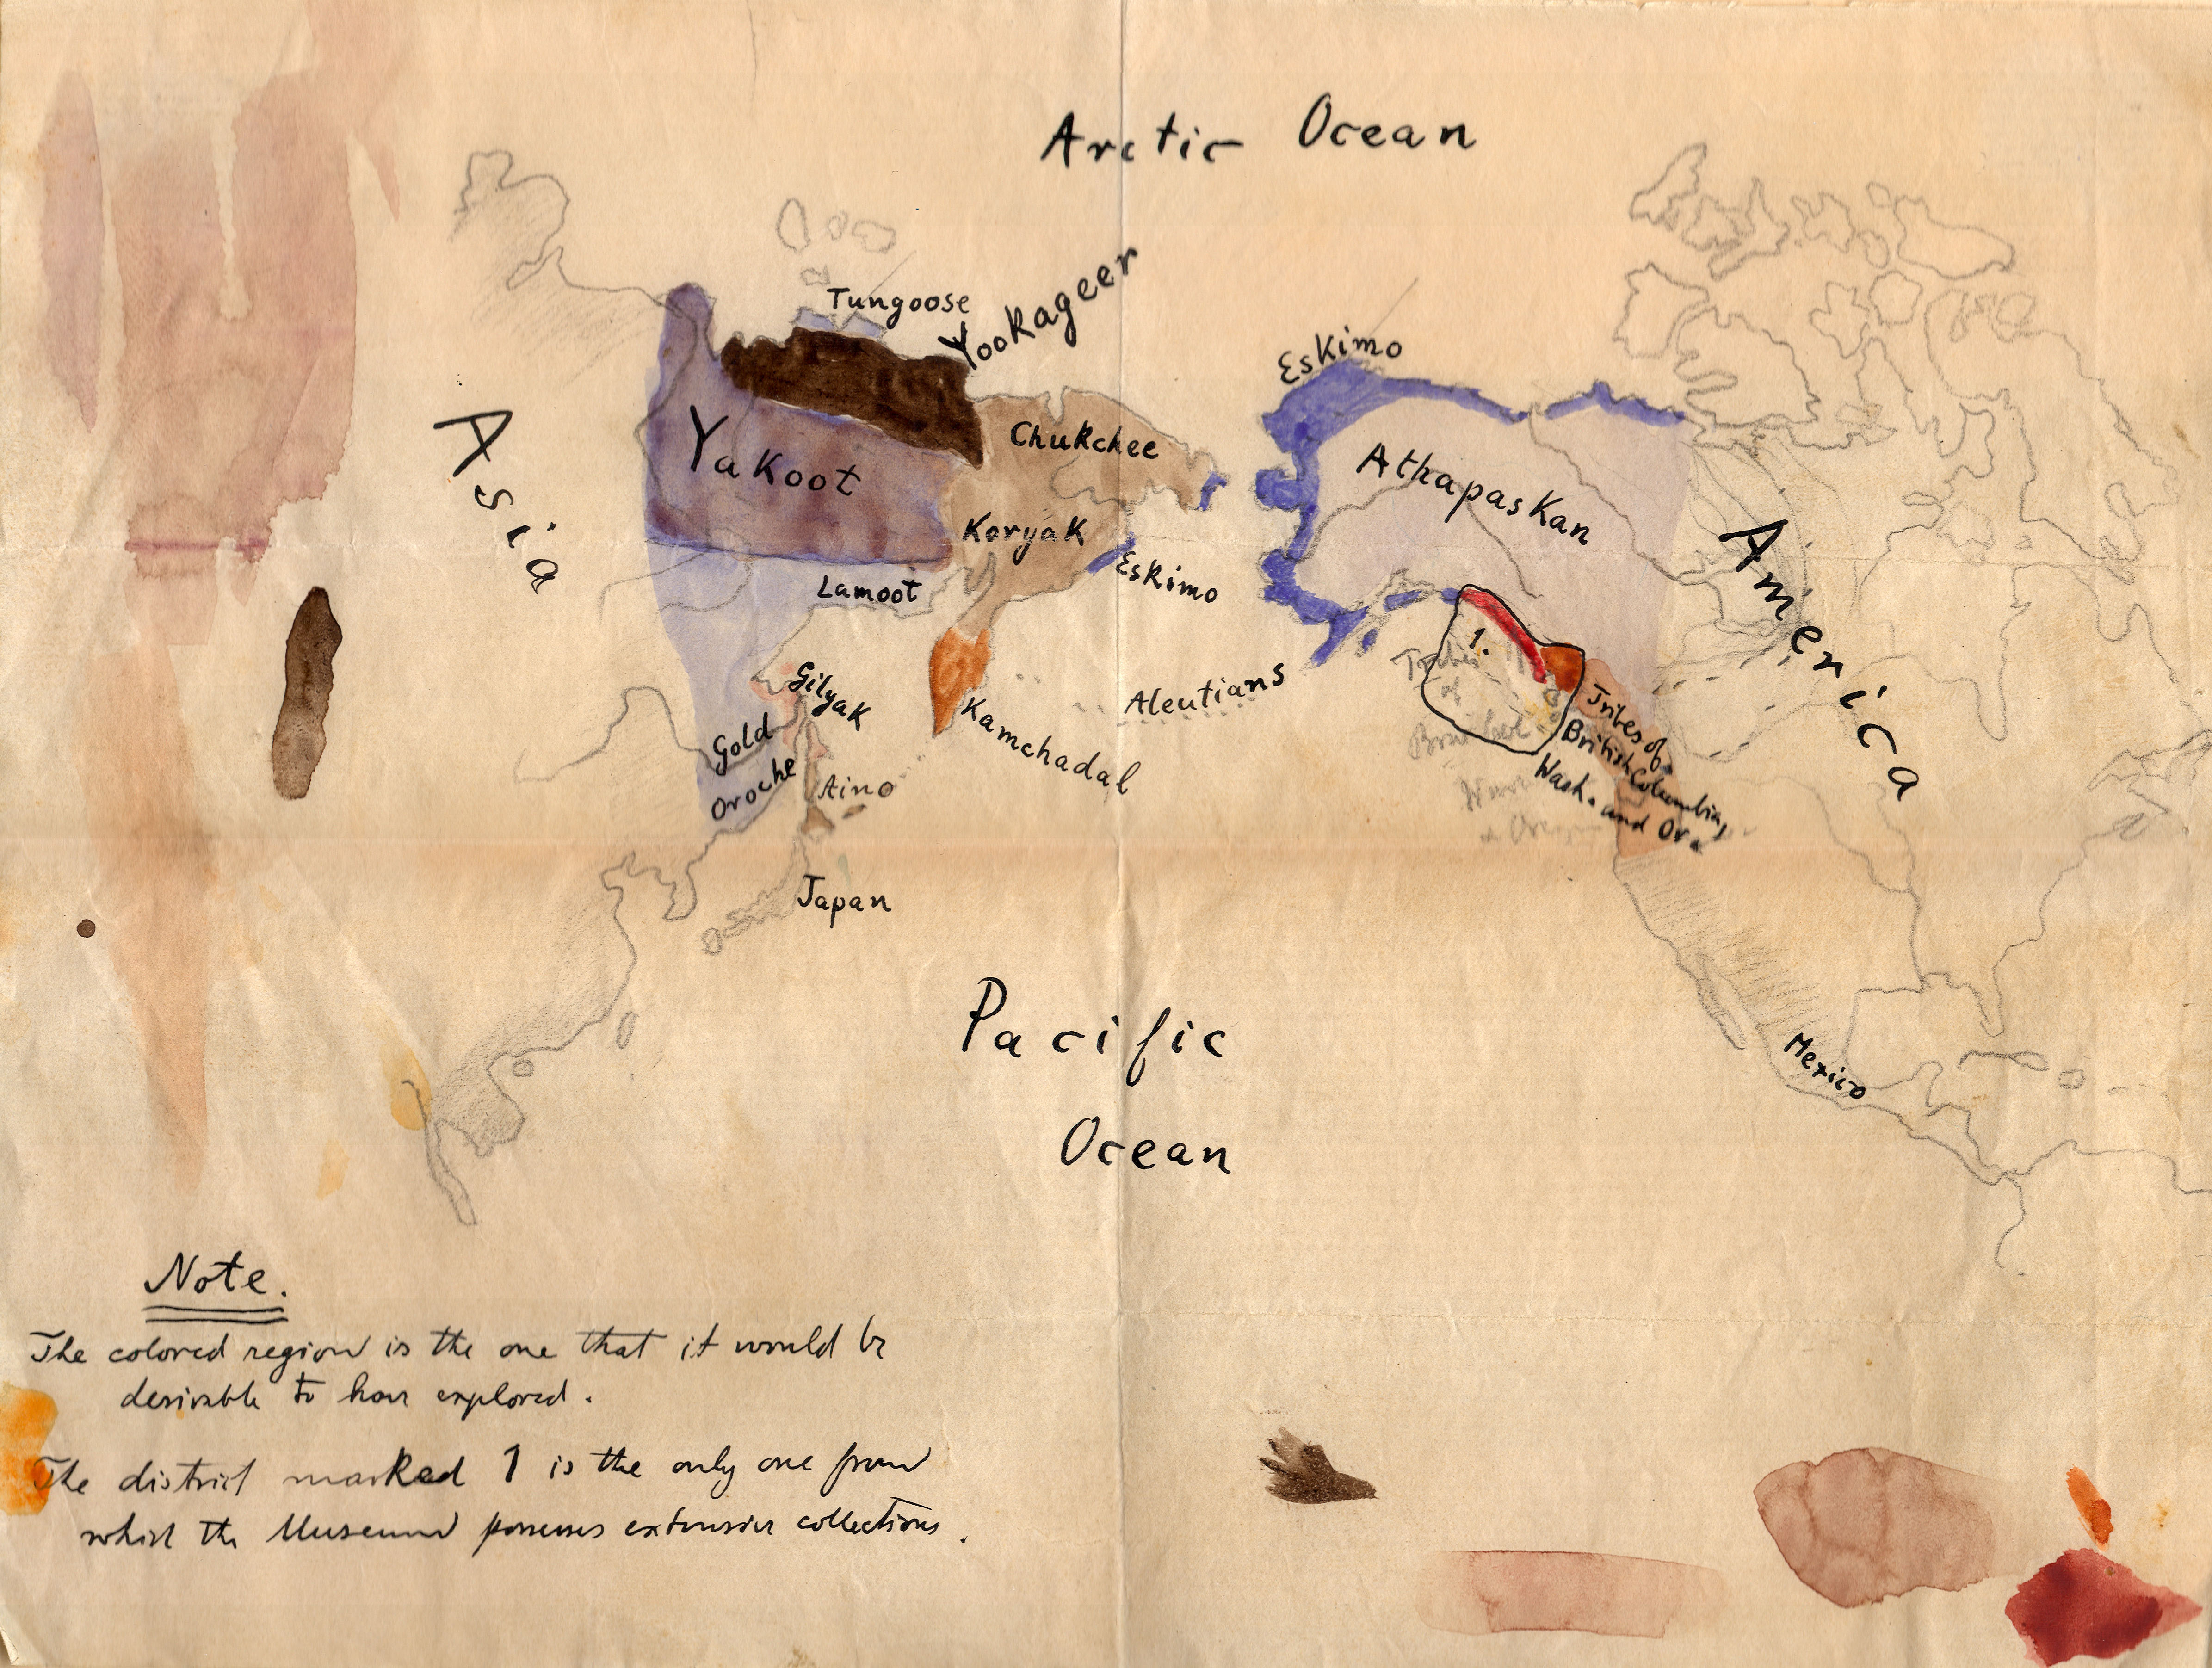 Arctic Ocean
Tungoose
Yookageer
Eskimo
Asia
Yakoot
Chukchee
Athapaskan
America
Koryak
Eskimo
Lamoot
1.
Tribes
of
Gilyak
Aleutians
Kamchadal
Gold
Oroche
Aino
Tribes of
British Columbia,
Wash. and Or.
Japan
Pacific
Ocean
Mexico
Note.
The colored region is the one that it would be
desirable to have explored.
The district marked 1 is the only one from
which the Museum possesses extensive collections.